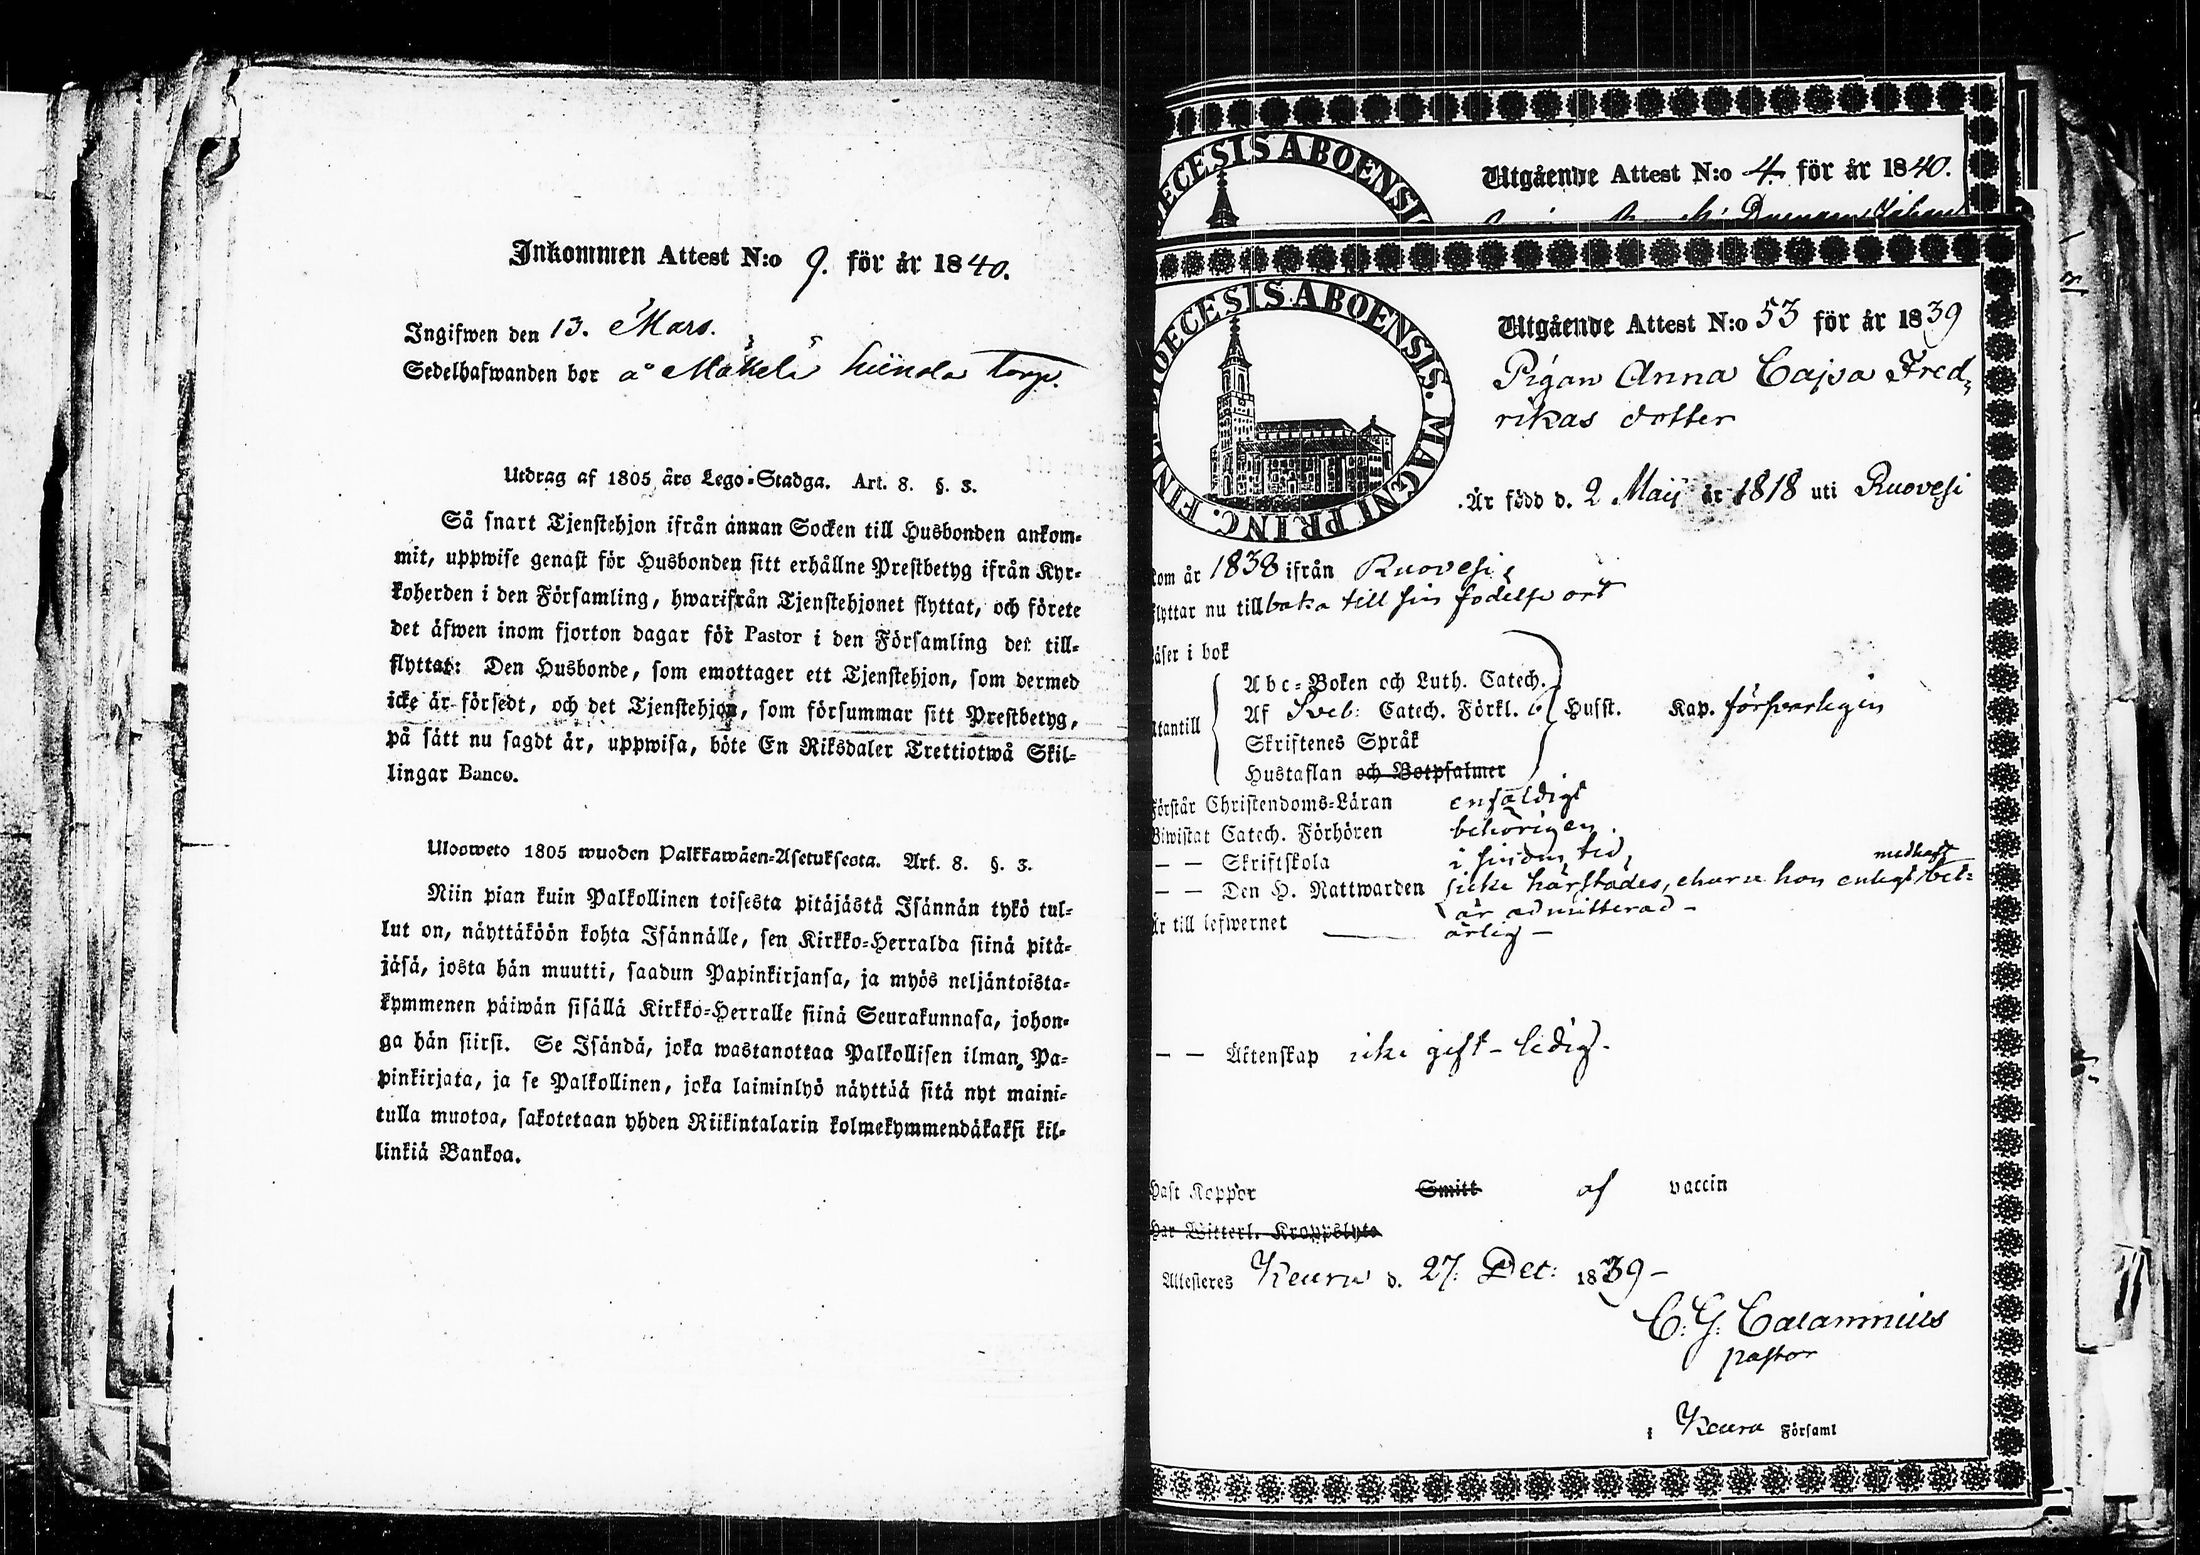 Inkommen Attest N:o 9. för år 1840.
Ingifwen den 13. Mars.
Sedelhafwanden bor å Mäkelä torp.
Utdrag af 1805 års Lego-Stadga. Art. 8. §. 3.
Så snart Tjenstehjon ifrån annan Socken till Husbonden ankom-
mit, uppwise genast för Husbonden sitt erhållne Prestbetyg ifrån Kyr-
koherden i den Församling, hwarifrån Tjenstehjonet flyttat, och förete
det äfwen inom fjorton dagar för Pastor i den Församling det till-
flyttat: Den Husbonde, som emottager ett Tjenstehjon, som dermed
icke är försedt, och det Tjenstehjon, som försummar sitt Prestbetyg,
på sätt nu sagdt är, uppwisa, böte En Riksdaler Trettiotwå Skil-
lingar Banco.
Ulosweto 1805 wuoden Palkkawäen-Asetuksesta. Art. 8. §. 3.
Niin pian kuin Palkollinen toisesta pitäjästä Isännän tykö tul-
lut on, näyttäköön kohta Isännälle, sen Kirkko-Herralda siinä pitä-
jäsä, josta hän muutti, saadun Papinkirjansa, ja myös neljäntoista-
kymmenen päiwän sisällä Kirkko-Herralle siinä Seurakunnasa, johon-
ga hän siirsi. Se Isändä, joka wastanottaa Palkollisen ilman Pa-
pinkirjata, ja se Palkollinen, joka laiminlyö näyttää sitä nyt maini-
tulla muotoa, sakotetaan yhden Riikintalarin kolmekymmendäkaksi kil-
linkiä Bankoa.
ECESIS ABOENSI
Utgående Attest N:o 4. för år 1840.
DIOECESIS ABOENSIS. MAGNI PRINC. FINL.
Utgående Attest N:o 53 för år 1839
Pigan Anna Cajsa Fred-
rikas dotter
Är född d. 2 Maij år 1818 uti Ruovesi
kom år 1838 ifrån Ruovesi,
flyttar nu till baka till sin födelse ort
läser i bok
Abc-Boken och Luth. Catech.
Af Sveb: Catech. Förkl. Husst. Kap. försvarligen
utantill
Skriftenes Språk
Hustaflan och Botpsalmer
Förstår Christendoms-Läran enfäldigt
Biwistat Catech. Förhören behörigen.
— — Skriftskola i sin tid,
— — Den H. Nattwarden icke härstädes, ehuru hon enligt medhaft bet-
är admitterad -
är till lefwernet ärlig -
— — Äktenskap icke gift - ledig.
Haft Koppor Smitt af vaccin
Har Witterl. Kroppslyte
Attesteres Keuru d. 27. Dec: 1839 -
C. G. Calamnius
pastor
i Keuru Församl